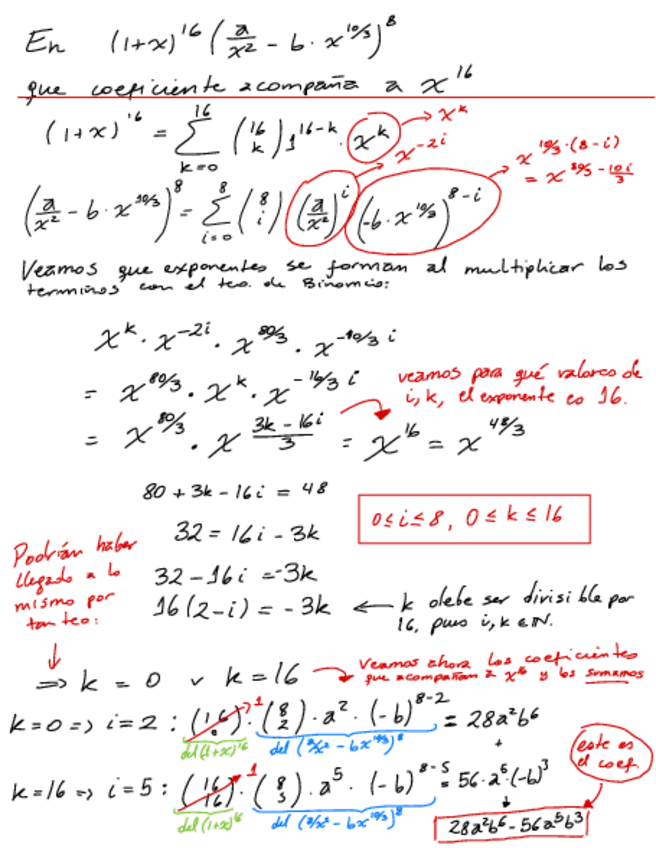 En (1+x)^16 (a/x² - b·x^10/3)^8
que coeficiente acompaña a x^16
(1+x)^16 = Σ_{k=0}^{16} (16 k) 1^{16-k} · x^k → x^k
(a/x² - b·x^10/3)^8 = Σ_{i=0}^{8} (8 i) (a/x²)^i (-b·x^10/3)^{8-i}
x^-2i
x^{10/3·(8-i)}
= x^{80/3 - 10i/3}
Veamos que exponentes se forman al multiplicar los
terminos con el teo. de Binomio:
x^k · x^-2i · x^80/3 · x^-10/3 i
= x^80/3 · x^k · x^-16/3 i
veamos para qué valores de
i, k, el exponente es 16.
= x^80/3 · x^{(3k-16i)/3} = x^16 = x^48/3
80 + 3k - 16i = 48
0≤i≤8, 0≤k≤16
32 = 16i - 3k
32 - 16i = -3k
16(2-i) = -3k ← k debe ser divisible por
16, pues i, k ∈ ℕ.
Podrían haber
llegado a lo
mismo por
tanteo:
⇒ k = 0 ∨ k = 16
Veamos ahora los coeficientes
que acompañan a x^16 y los sumamos
k=0 => i=2 : (16 0) 1 · (8 2) · a² · (-b)^{8-2} = 28a²b⁶
del (1+x)^16
del (a/x² - bx^10/3)^8
+
este es
el coef.
k=16 => i=5 : (16 16) 1 · (8 5) · a⁵ · (-b)^{8-5} = 56·a⁵·(-b)³
del (1+x)^16
del (a/x² - bx^10/3)^8
28a²b⁶ - 56a⁵b³